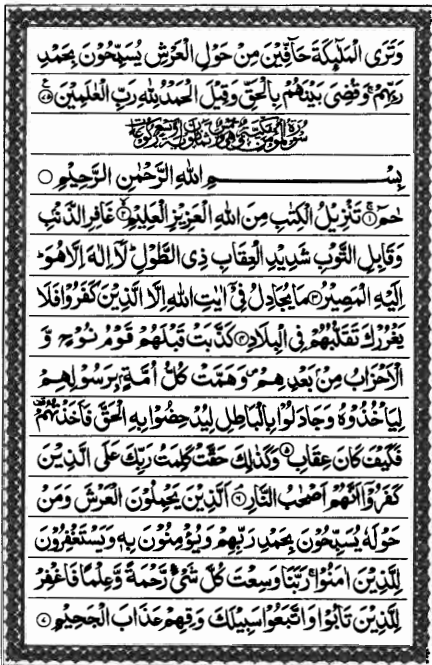 وَتَرَى الْمَلٰٓئِكَةَ حَآفِّيْنَ مِنْ حَوْلِ الْعَرْشِ يُسَبِّحُوْنَ بِحَمْدِ
رَبِّهِمْ ۚ وَقُضِىَ بَيْنَهُمْ بِالْحَقِّ وَقِيْلَ الْحَمْدُ لِلّٰهِ رَبِّ الْعٰلَمِيْنَ ۷۵
بِسْمِ اللهِ الرَّحْمٰنِ الرَّحِيْمِ ۝
حٰمٓ ۚ ۱ تَنْزِيْلُ الْكِتٰبِ مِنَ اللهِ الْعَزِيْزِ الْعَلِيْمِ ۙ ۲ غَافِرِ الذَّنْۢبِ
وَقَابِلِ التَّوْبِ شَدِيْدِ الْعِقَابِ ذِى الطَّوْلِ ؕ لَاۤ اِلٰهَ اِلَّا هُوَ ؕ
اِلَيْهِ الْمَصِيْرُ ۳ مَا يُجَادِلُ فِىْۤ اٰيٰتِ اللهِ اِلَّا الَّذِيْنَ كَفَرُوْا فَلَا
يَغْرُرْكَ تَقَلُّبُهُمْ فِى الْبِلَادِ ۴ كَذَّبَتْ قَبْلَهُمْ قَوْمُ نُوْحٍ وَّ
الْاَحْزَابُ مِنْۢ بَعْدِهِمْ ۪ وَهَمَّتْ كُلُّ اُمَّةٍۭ بِرَسُوْلِهِمْ
لِيَاْخُذُوْهُ وَجَادَلُوْا بِالْبَاطِلِ لِيُدْحِضُوْا بِهِ الْحَقَّ فَاَخَذْتُهُمْ
فَكَيْفَ كَانَ عِقَابِ ۵ وَكَذٰلِكَ حَقَّتْ كَلِمَتُ رَبِّكَ عَلَى الَّذِيْنَ
كَفَرُوْۤا اَنَّهُمْ اَصْحٰبُ النَّارِ ۶ اَلَّذِيْنَ يَحْمِلُوْنَ الْعَرْشَ وَمَنْ
حَوْلَهٗ يُسَبِّحُوْنَ بِحَمْدِ رَبِّهِمْ وَيُؤْمِنُوْنَ بِهٖ وَيَسْتَغْفِرُوْنَ
لِلَّذِيْنَ اٰمَنُوْا ۚ رَبَّنَا وَسِعْتَ كُلَّ شَىْءٍ رَّحْمَةً وَّعِلْمًا فَاغْفِرْ
لِلَّذِيْنَ تَابُوْا وَاتَّبَعُوْا سَبِيْلَكَ وَقِهِمْ عَذَابَ الْجَحِيْمِ ۷